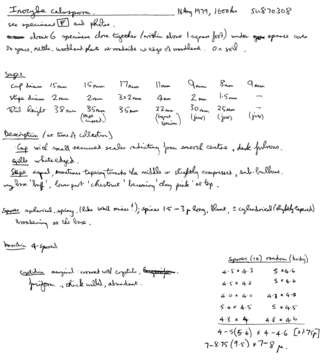 Inocybe calospora. 14 Aug 1979, 1600 hrs SU870308
see specimen F and photos.
about 6 specimens close together (within about 1 square foot) under spruce over
30 years, nettle, woodland plant on roadside at edge of woodland. On soil.
Sizes
Cap diam 15mm 15mm 17mm 11mm 9mm 8mm 9mm
Stipe diam 2mm 2mm 3×2mm 4mm 2mm 1.5mm —
Total height 38mm 35mm 35mm 22mm 30mm 25mm —
Description (at time of collection)
Cap with small recurved scales radiating from smooth centre, dark fulvous.
Gills white edged.
Stipe equal, sometimes tapering towards the middle or slightly compressed, sub-bulbous.
'buff', lower part 'chestnut' becoming 'clay pink' at top.
Spores spherical, spiny (like small mines!); spines 1.5–3μ long, blunt, ± cylindrical (slightly tapered)
broadening at the base.
Basidia 4-spored
Cystidia marginal crowned with crystals,
fusiform, thick walled, abundant.
Spores (10) random (body)
4.5 × 4.3 5 × 4.6
4.5 × 4.2 5 × 4.6
4.0 × 4.0 4.8 × 4.8
5 × 4.5 5 × 4.5
4.8 × 4 4.8 × 4.6
4–5(5.6) × 4–4.6 [±1.75μ]
7–8.75(9.5) × 7–8μ.